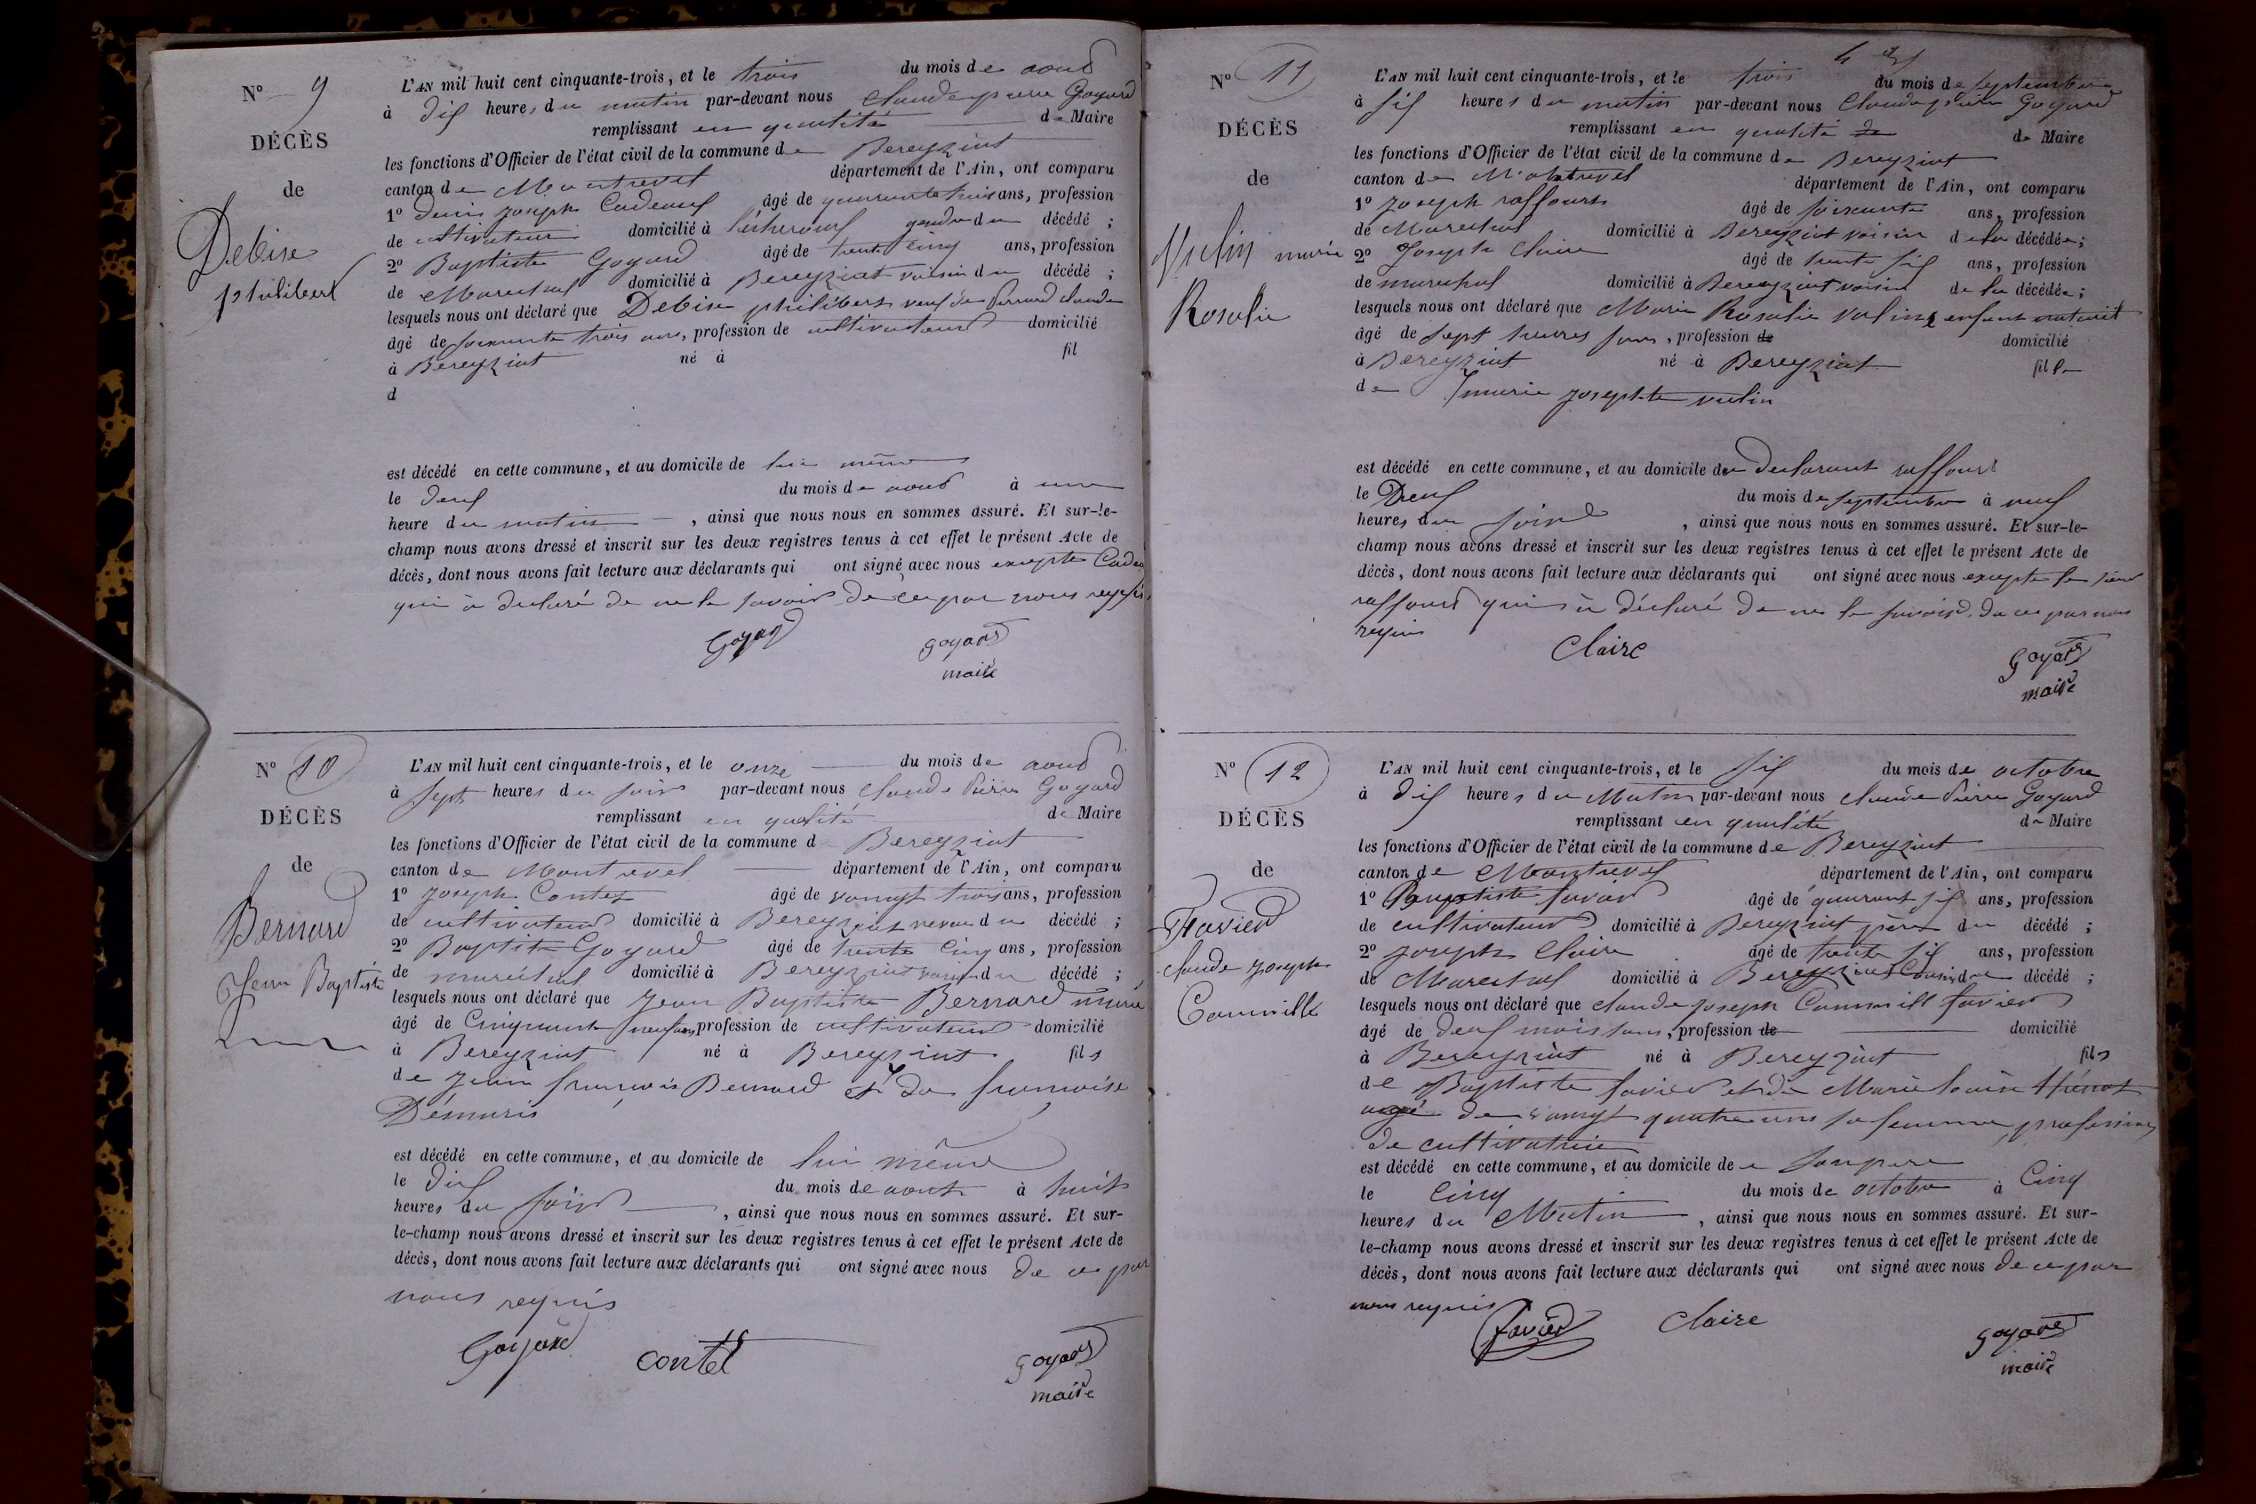 N° 9
DÉCÈS
de
Debise
philibert
L'AN mil huit cent cinquante-trois, et le trois du mois de aout
à dix heures du matin par-devant nous claude pierre Goyard
remplissant en qualité de Maire
les fonctions d'Officier de l'état civil de la commune de Bereyziat
canton de Montrevel département de l'Ain, ont comparu
1° denis joseph Cadeaux âgé de quarante trois ans, profession
de cultivateur domicilié à gendre du décédé ;
2° Baptiste Goyard âgé de trente cinq ans, profession
de Marechal domicilié à Bereyziat voisin du décédé ;
lesquels nous ont déclaré que Debise philibert veuf de Perrard claudine
âgé de soixante trois ans, profession de cultivateur domicilié
à Bereyziat né à fil
d
est décédé en cette commune, et au domicile de lui même
le deux du mois de aout à une
heure du matin, ainsi que nous nous en sommes assuré. Et sur-le-
champ nous avons dressé et inscrit sur les deux registres tenus à cet effet le présent Acte de
décès, dont nous avons fait lecture aux déclarants qui ont signé avec nous excepte Cadeau
qui à declaré de ne le savoir de ce par nous requis
Goyard goyard
maire
N° 10
DÉCÈS
de
Bernard
Jean Baptiste
L'AN mil huit cent cinquante-trois, et le onze du mois de aout
à sept heures du soir par-devant nous claude Pierre Goyard
remplissant en qualité de Maire
les fonctions d'Officier de l'état civil de la commune d Bereyziat
canton de Montrevel département de l'Ain, ont comparu
1° joseph Contet âgé de vanngt trois ans, profession
de cultivateur domicilié à Bereyziat neveu du décédé ;
2° Baptiste Goyard âgé de trente cinq ans, profession
de marechal domicilié à Bereyziat voisin du décédé ;
lesquels nous ont déclaré que Jean Baptiste Bernard marié
âgé de Cinquante neuf ans, profession de cultivateur domicilié
à Bereyziat né à Bereyziat fils
de Jean francois Bernard et de francoise
Démaris
est décédé en cette commune, et au domicile de lui même
le dix du mois de aout à huit
heures du soir, ainsi que nous nous en sommes assuré. Et sur-
le-champ nous avons dressé et inscrit sur les deux registres tenus à cet effet le présent Acte de
décès, dont nous avons fait lecture aux déclarants qui ont signé avec nous de ce par
nous requis
Goyard contet goyard
maire
N° 11
DÉCÈS
de
Vulin marie
Rosalie
L'AN mil huit cent cinquante-trois, et le trois du mois de septembre
à six heures du matin par-devant nous Claude pierre Goyard
remplissant en qualité de de Maire
les fonctions d'Officier de l'état civil de la commune de Bereyziat
canton de Montrevel département de l'Ain, ont comparu
1° Joseph raffourt âgé de soixante ans, profession
de Marechal domicilié à Bereyziat voisin de la décédée ;
2° Joseph Claire âgé de trente six ans, profession
de marechal domicilié à Bereyziat voisin de la décédée ;
lesquels nous ont déclaré que Marie Rosalie vulin enfant naturel
âgé de sept heures jours, profession de domicilié
à Bereyziat né à Bereyziat fille
de marie josephte vulin
est décédé en cette commune, et au domicile du declarant raffourt
le Deux du mois de septembre à neuf
heures du soire, ainsi que nous nous en sommes assuré. Et sur-le-
champ nous avons dressé et inscrit sur les deux registres tenus à cet effet le présent Acte de
décès, dont nous avons fait lecture aux déclarants qui ont signé avec nous excepte le sieur
raffourt qui à déclaré de ne le savoir de ce par nous
requis
Claire goyard
maire
N° 12
DÉCÈS
de
Favier
claude joseph
Cammille
L'AN mil huit cent cinquante-trois, et le six du mois de octobre
à dix heures du Matin par-devant nous claude Pierre Goyard
remplissant en qualité de Maire
les fonctions d'Officier de l'état civil de la commune de Bereyziat
canton de Montrevel département de l'Ain, ont comparu
1° Bauptiste favier âgé de quarant six ans, profession
de cultivateur domicilié à Bereyziat père du décédé ;
2° joseph Claire âgé de trente six ans, profession
de Marechal domicilié à Bereyziat Cousin du décédé ;
lesquels nous ont déclaré que claude joseph Cammill favier
âgé de deux mois, profession de domicilié
à Bereyziat né à Bereyziat fils
de Baptiste favier et de Marie louise thénot
agé de vanngt quatre ans sa femme profession
de cultivatrice
est décédé en cette commune, et au domicile de son pere
le cinq du mois de octobre à Cinq
heures du Matin, ainsi que nous nous en sommes assuré. Et sur-
le-champ nous avons dressé et inscrit sur les deux registres tenus à cet effet le présent Acte de
décès, dont nous avons fait lecture aux déclarants qui ont signé avec nous de ce par
nous requis
favier Claire goyard
maire